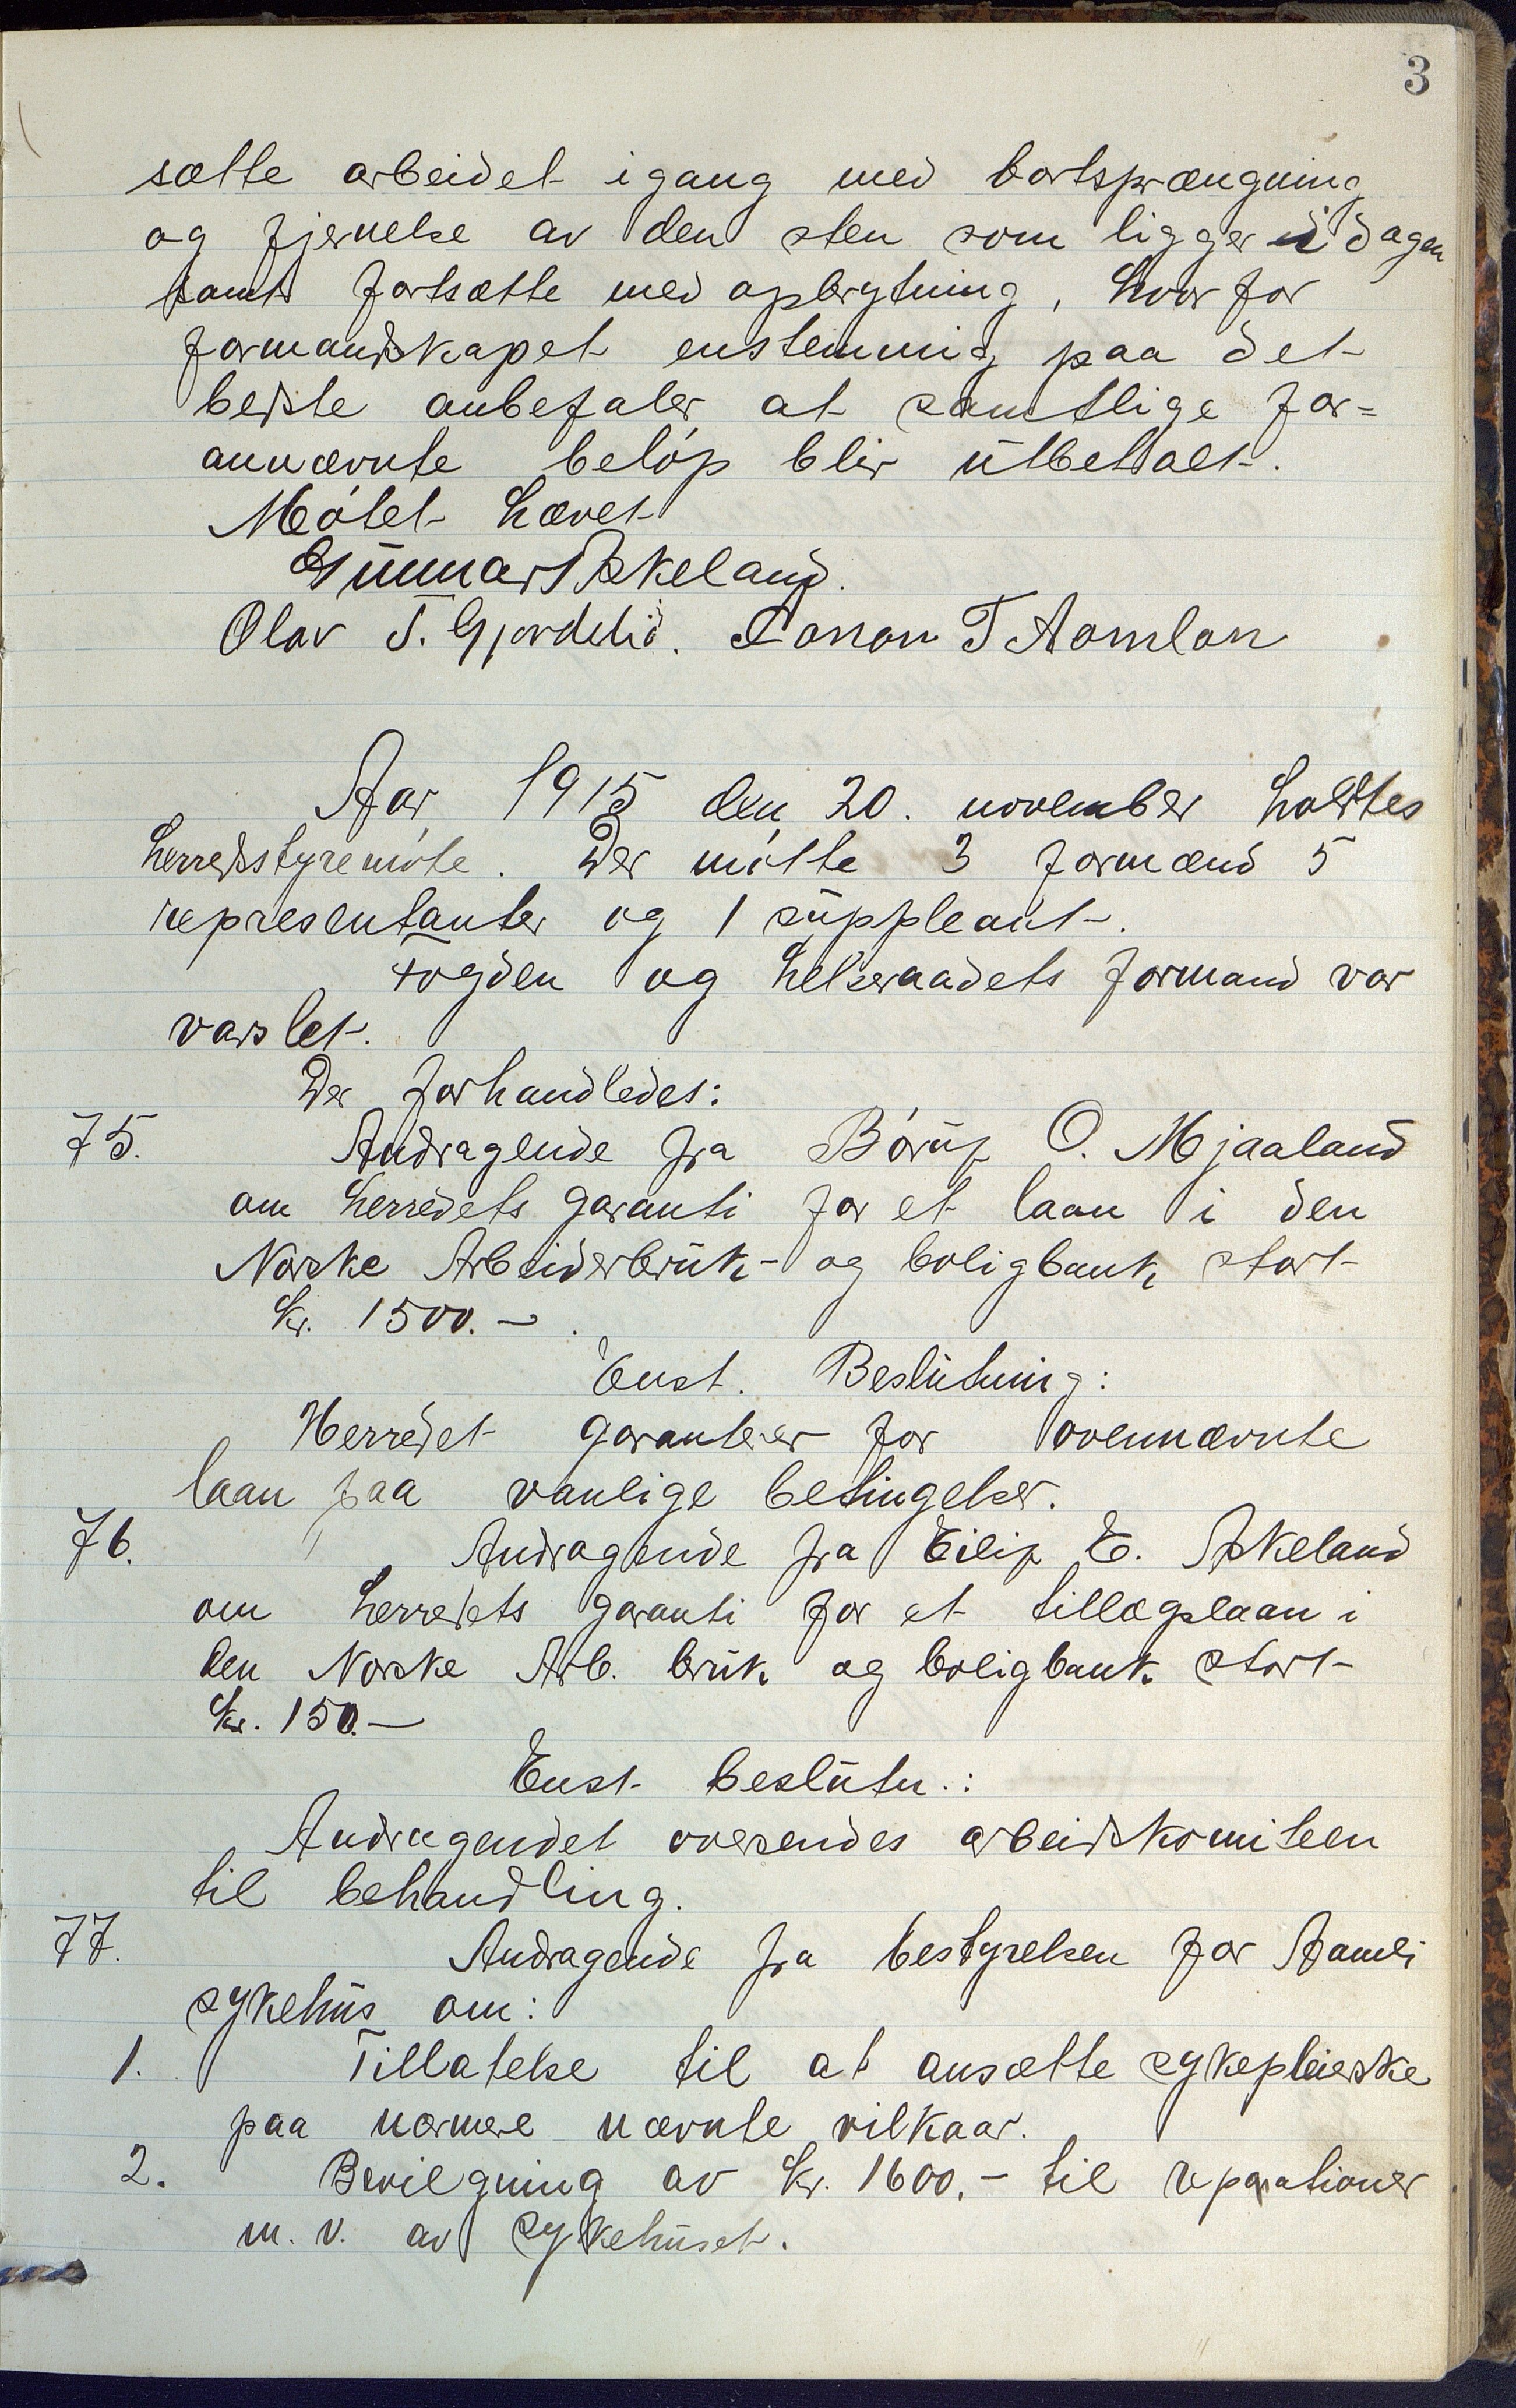 3
sætte arbeidet igang med bortsprængning
og fjernelse av den sten som ligger i dagen
samt fortsætte med oplrytning, hvorfor
formandskapet enstemmig paa det
beste anbefaler at samtlige for=
annævnte beløp blir utbetalt.
Møtet hævet
Gunnar Askeland.
Olav T. Gjordelid. T Aamlan
Aar 1915 den 20. november holdtes
herredsstyremøte. Der møtte 3 formænd 5
representanter og 1 suppleant.
Fogden og helseraadets formand var
varslet.
Der forhandledes:
75. Andragende fra Børuf O. Mjaaland
om herredets garanti for et laan i den
Norske Arbeiderbruk- og boligbank stort
kr. 1500.-
Enst. Beslutning:
Herredet garanterer for ovennævnte
laan paa vanlige betingelser.
76. Andragende fra Eilif E. Askeland
om herredets garanti for et tillægslaan i
den Norske Arb. bruk og boligbank stort
kr. 150.-
Enst. beslutn.:
Andragendet oversendes arbeidskomiteen
til behandling.
77. Andragende fra bestyrelsen for Aamli
sykehus om:
1. Tillatelse til at ansætte sykepleierske
paa nærmere nævnte vilkaar.
2. Bevilgning av kr. 1600.- til reparationer
m. v. av sykehuset.